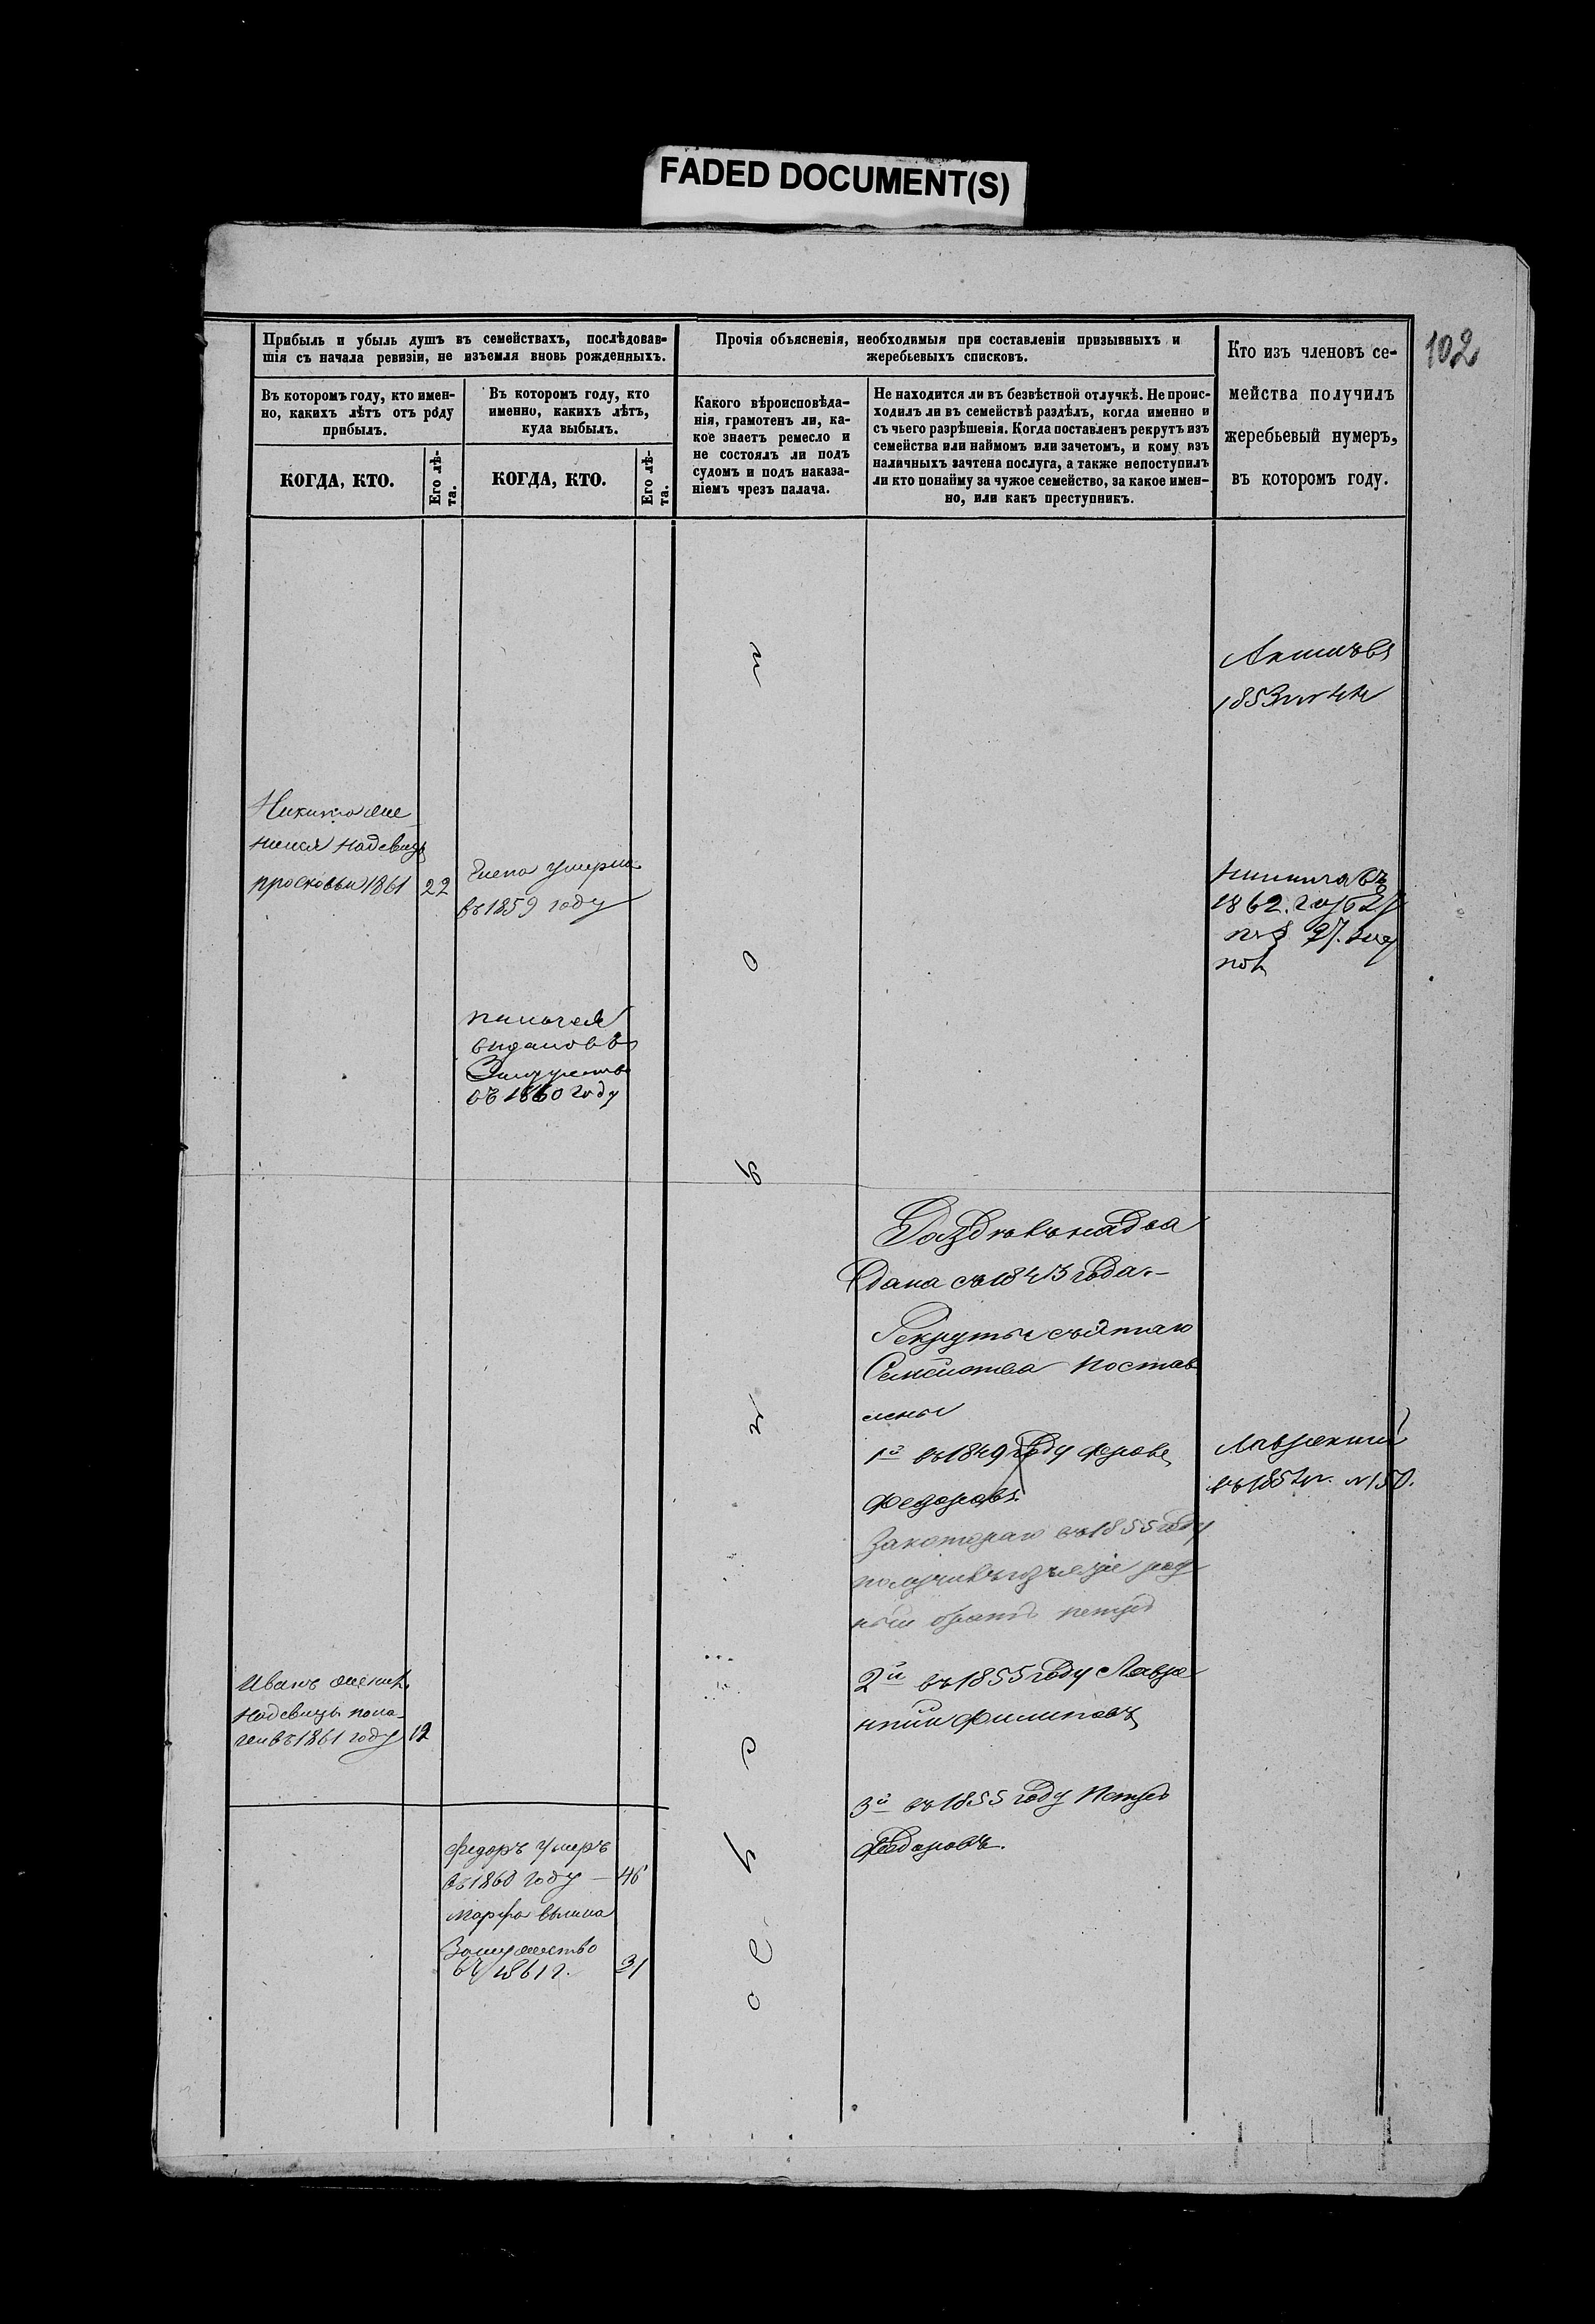 FADED DOCUMENT(S)
102
Прибыль и убыль душъ въ семействахъ, послѣдовав-
шія съ начала ревизіи, не изъемля вновь рожденныхъ.
Въ которомъ году, кто имен-
но, какихъ лѣтъ отъ роду
прибылъ.
КОГДА, КТО.
Его лѣ-
та.
Въ которомъ году, кто
именно, какихъ лѣтъ,
куда выбылъ.
КОГДА, КТО.
Его лѣ-
та.
Прочія объясненія, необходимыя при составленіи призывныхъ и
жеребьевыхъ списковъ.
Какого вѣроисповѣда-
нія, грамотенъ ли, ка-
кое знаетъ ремесло и
не состоялъ ли подъ
судомъ и подъ наказа-
ніемъ чрезъ палача.
Не находится ли въ безвѣстной отлучкѣ. Не проис-
ходилъ ли въ семействѣ раздѣлъ, когда именно и
съ чьего разрѣшенія. Когда поставленъ рекрутъ изъ
семейства или наймомъ или зачетомъ, и кому изъ
наличныхъ зачтена послуга, а также непоступилъ
ли кто понайму за чужое семейство, за какое имен-
но, или какъ преступникъ.
Кто изъ членовъ се-
мейства получилъ
жеребьевый нумеръ,
въ которомъ году.
1853
Никита же
нился надевице
просковьи 1861 22
Елена умерла
въ 1859 году
1862.
выдана въ
Замужество
въ 1860 году
Раздѣлъ на два
съ 18
года.-
Рекруты съ этаго
Семейства постав
лены
1й въ 1849 году
Федоровъ
Закотораго въ 1855 году
братъ петръ
2й въ 1855 году Лавре
нтій Филиповъ
3й въ 1855 году Петръ
Федоровъ.
Лаврентій
№ 150.
Иванъ женил.
надевицы пела-
геи въ 1861 году 12
Федоръ умеръ
въ 1860 году — 46
марфа вышла
Замужество
въ 1861 г. 31